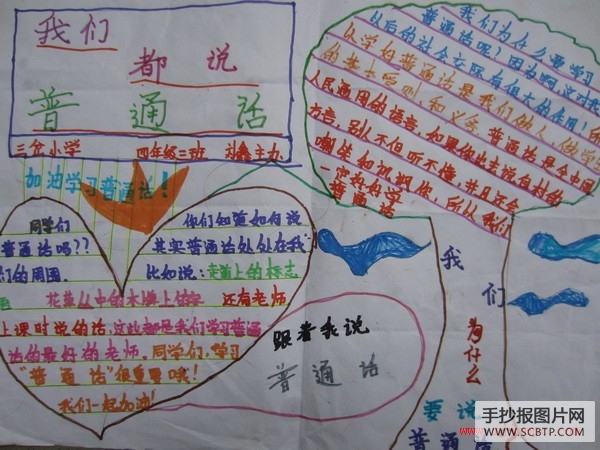 我们
都说
普通话
三分小学 四年级二班 主办
加油学习普通话！
同学们
普通话吗??
们的周围
你们知道如何说
其实普通话处处在我
比如说:走道上的标志
语 花草丛中的木牌上的字 还有老师
上课时说的话,这些都是我们学习普通
话的最好的老师。同学们,学习
"普通话"很重要哦!
我们一起加油!
跟着我说
普通话
我们为什么要学习
普通话呢?因为啊,这对我
从后的社会交际有很大的作用!
从学好普通话是我们的人的学
的基本原则和义务,普通话是全中国
人民通用的语言,如果你出去说自村的
方言,别人不但听不懂,并且还会
嘲笑和讥讽你,所以我们
一定好好学
普通话
我
们
为
什
么
要说
普通话
手抄报图片网
WWW.SCBTP.COM